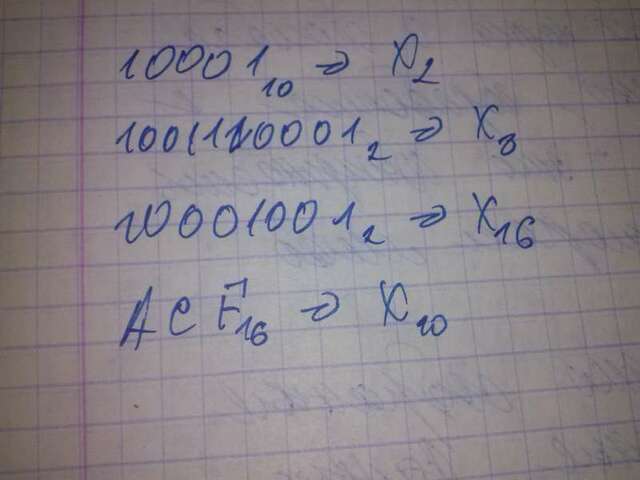 10001₁₀ ⇒ X₂
10011110001₂ ⇒ X₈
10001001₂ ⇒ X₁₆
ACF₁₆ ⇒ X₁₀